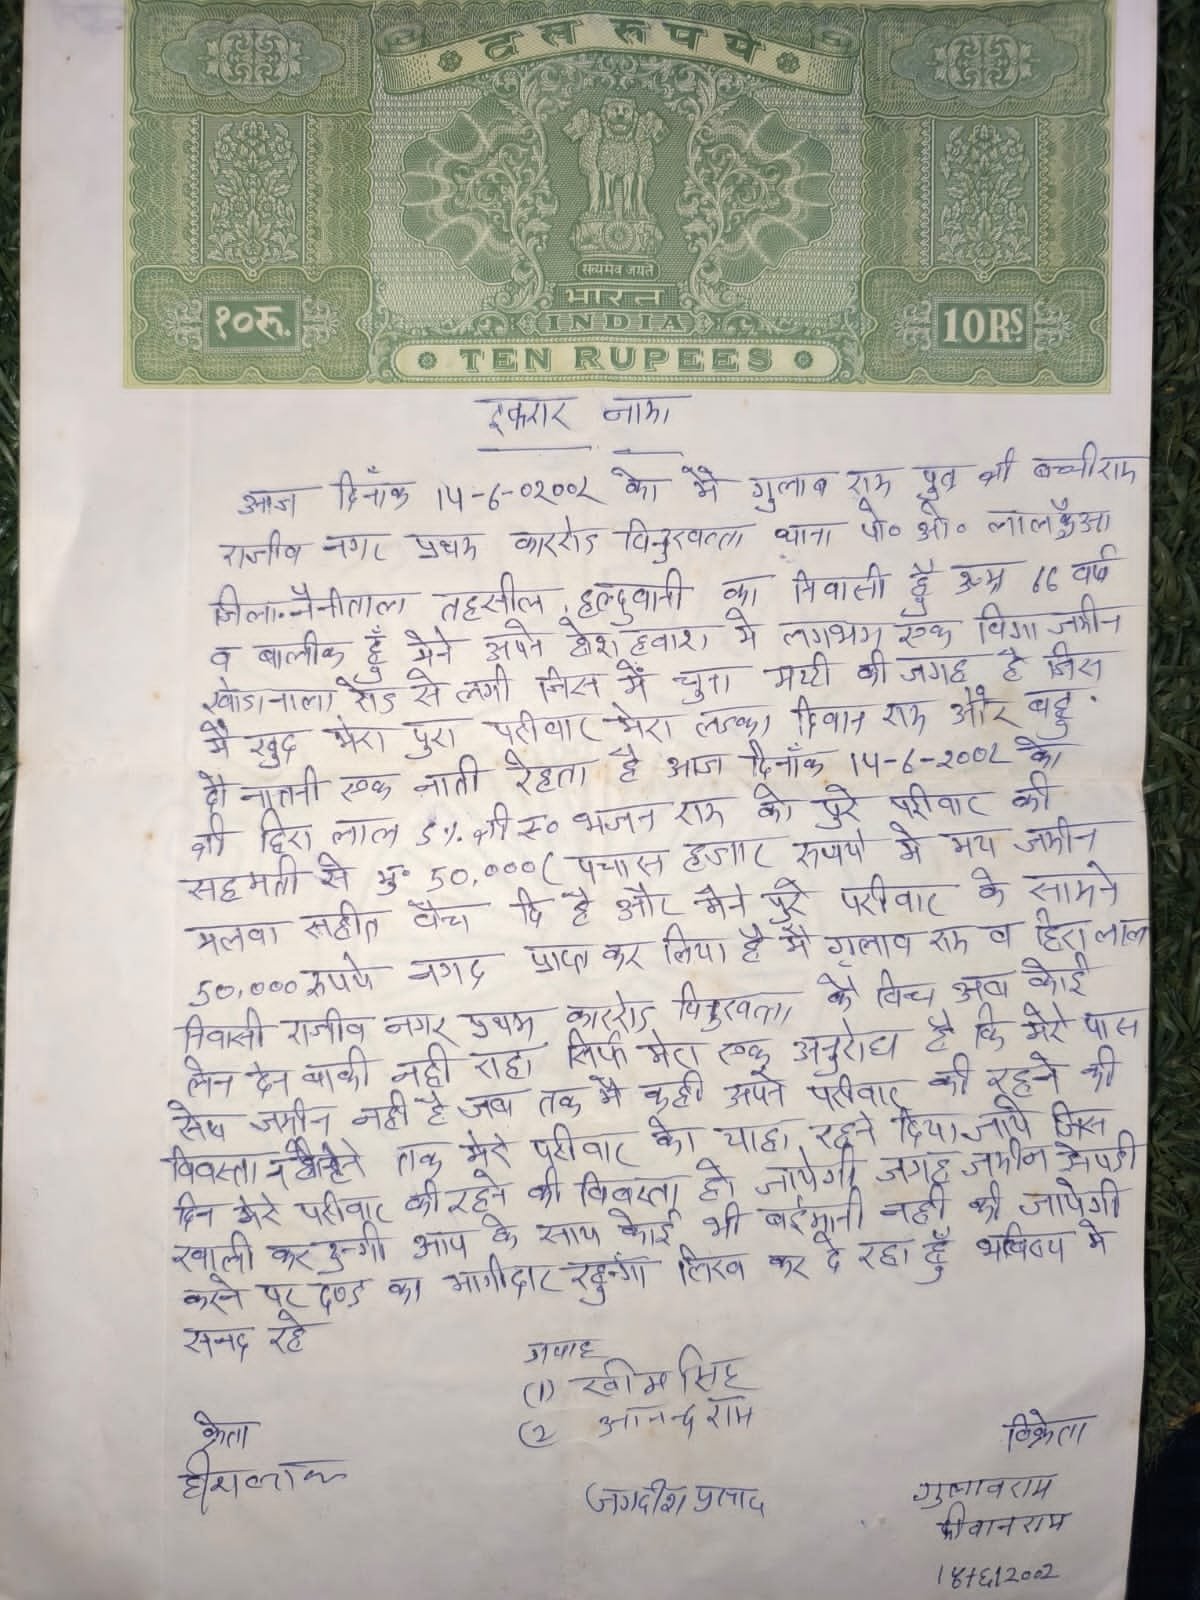 दस रुपये
सत्यमेव जयते
भारत
INDIA
१०रू.
10RS
TEN RUPEES
इकरार नामा
आज दिनाँक 14-6-02002 को मैं गुलाब राम पुत्र श्री बच्चीराम
राजीव नगर प्रथम काररोड विन्दुखत्ता थाना पो० ओ० लालकुँआ
जिला.नैनीताल तहसील, हल्दुवानी का निवासी हूँ उम्र 66 वर्ष
व बालीक हूँ मैने अपने होश हवाश मे लगभग एक विगा जमीन
खोडानाला रोड से लगी जिस में चुना मट्टी की जगह है जिस
मै खुद मेरा पुरा परीवार मेरा लडका दिवान राम और बहु
दो नातनी एक नाती रेहता है आज दिनाँक 14-6-2002 को
श्री हिरा लाल S/. श्री स्व० भजन राम को पुरे परीवार की
सहमती से मु० 50,000( पचास हजार रुपये मे मय जमीन
मलवा सहीत वेच दि है और मैने पुरे परीवार के सामने
50,000 रुपये नगद प्राप्त कर लिया है मै गुलाव राम व हिरा लाल
निवासी राजीव नगर प्रथम काररोड विन्दुखत्ता के विच अव कोई
लेन देन वाकी नही राहा सिर्फ मेरा एक अनुरोध है कि मेरे पास
सेष जमीन नही है जव तक मै कही अपने परीवार की रहने की
विवस्ता न होने तक मेरे परीवार को याहा रहने दिया जाये जिस
दिन मेरे परीवार की रहने की विवस्ता हो जायेगी जगह जमीन
खाली कर दुन्गी आप के साथ कोई भी बईमानी नही की जायेगी
करने पर दण्ड का भागीदार रहुन्गा लिख कर दे रहा हूँ भविष्य मे
सनद रहे
गवाह
(1) खीम सिंह
(2 आनन्द राम
क्रेता
विक्रेता
हीरालाल
जगदीश प्रसाद
गुलाव राम
दीवान राम
14/6/2002